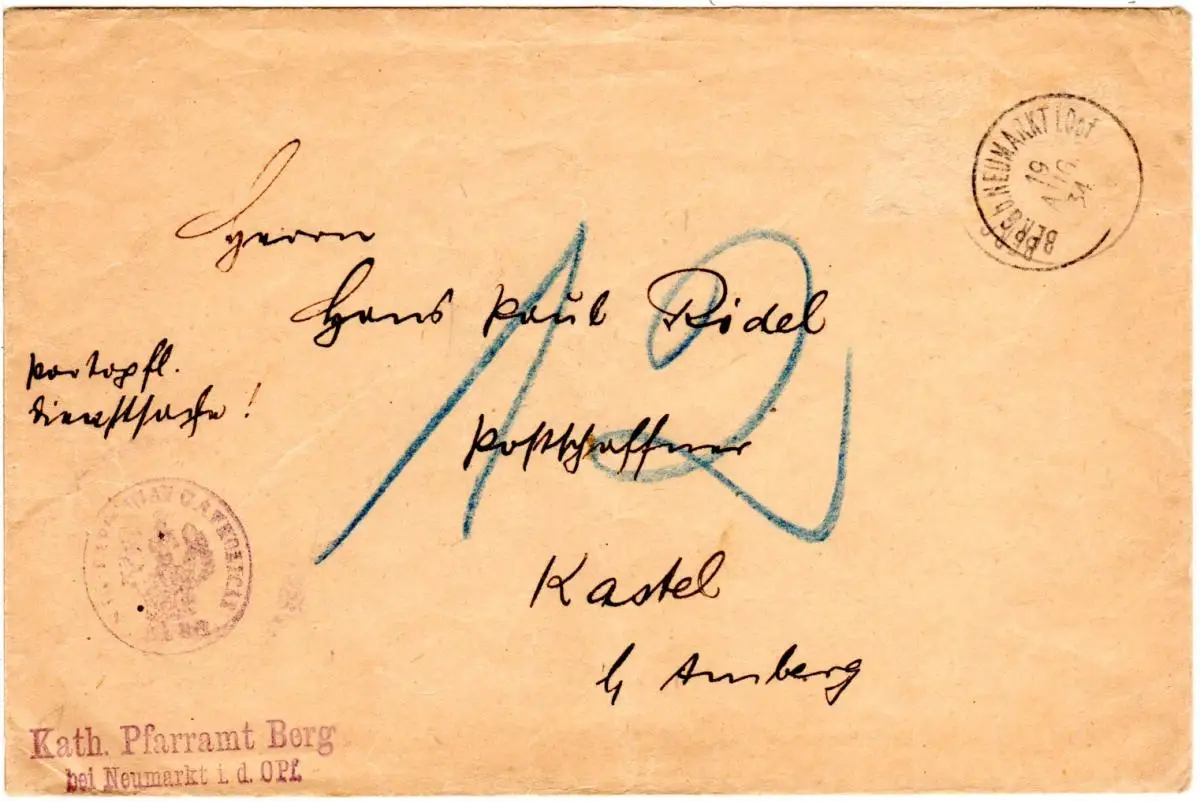 BERG b NEUMARKT i.OPf
19
AUG.
34
Herrn
Hans Paul Ridel
12
portopfl.
Dienstsache!
Postschaffner
Kastel
b/ Amberg
Kath. Pfarramt Berg
bei Neumarkt i. d. OPf.